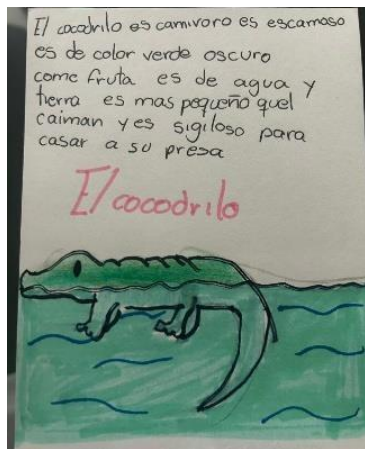 El cocodrilo es carnivoro es escamoso
es de color verde oscuro
come fruta es de agua y
tierra es mas pequeño quel
caiman y es sigiloso para
casar a su presa
El cocodrilo